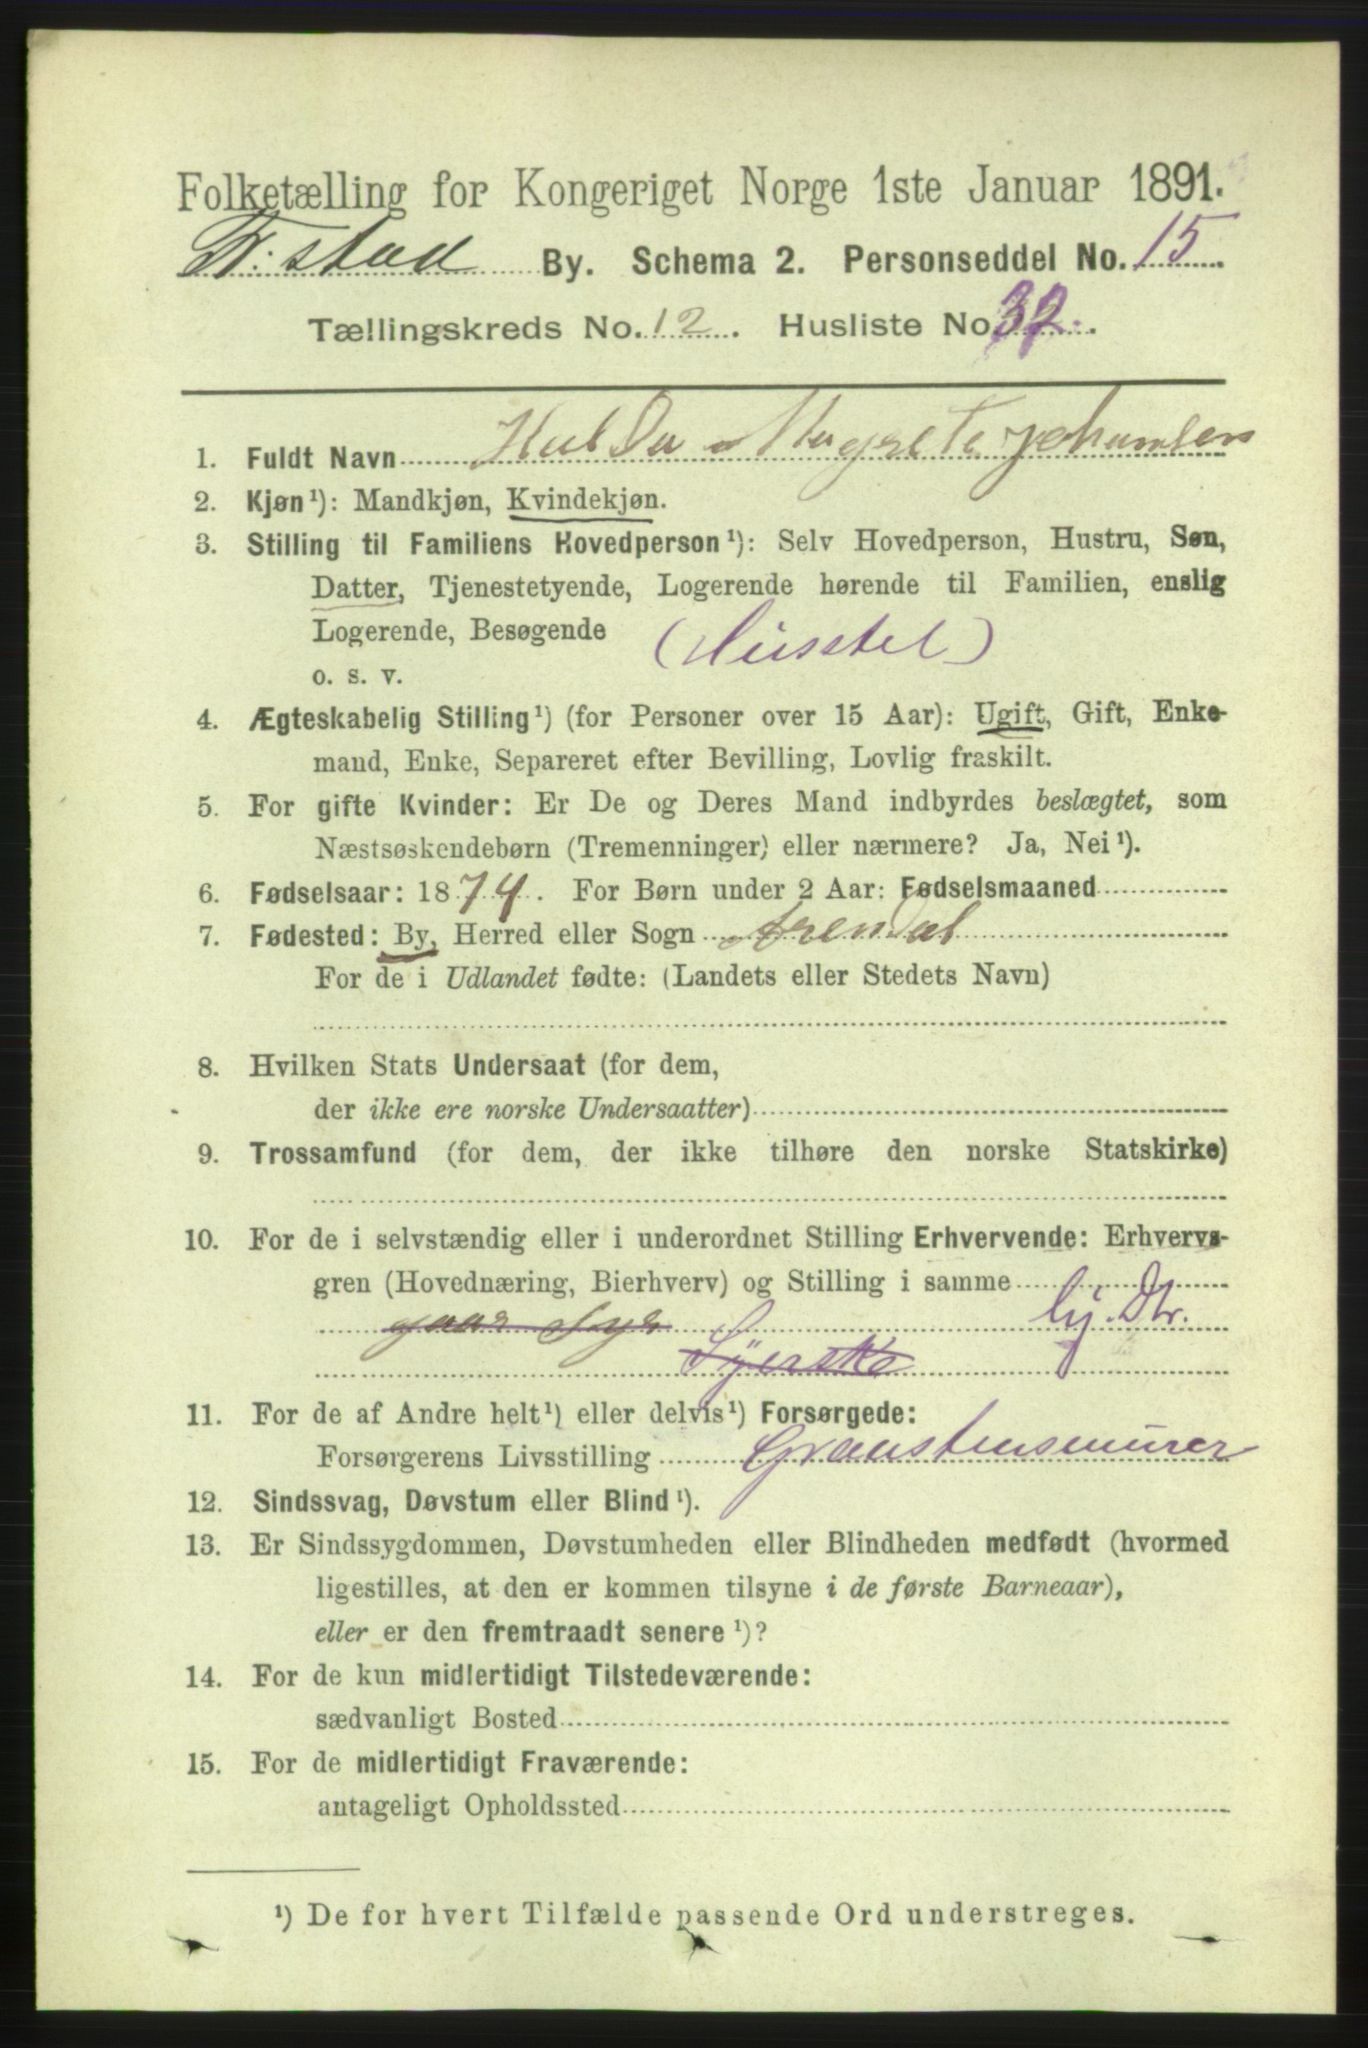 Folketælling for Kongeriget Norge 1ste Januar 1891.
Fr.stad By. Schema 2. Personseddel No. 15.
Tællingskreds No. 12. Husliste No. 32.
1. Fuldt Navn Hulda Magrete Johansen
2. Kjøn¹): Mandkjøn, Kvindekjøn.
3. Stilling til Familiens Hovedperson¹): Selv Hovedperson, Hustru, Søn,
Datter, Tjenestetyende, Logerende hørende til Familien, enslig
Logerende, Besøgende
o. s. v.
4. Ægteskabelig Stilling¹) (for Personer over 15 Aar): Ugift, Gift, Enke-
mand, Enke, Separeret efter Bevilling, Lovlig fraskilt.
5. For gifte Kvinder: Er De og Deres Mand indbyrdes beslægtet, som
Næstsøskendebørn (Tremenninger) eller nærmere? Ja, Nei¹).
6. Fødselsaar: 1874. For Børn under 2 Aar: Fødselsmaaned
7. Fødested: By, Herred eller Sogn Arendal
For de i Udlandet fødte: (Landets eller Stedets Navn)
8. Hvilken Stats Undersaat (for dem,
der ikke ere norske Undersaatter)
9. Trossamfund (for dem, der ikke tilhøre den norske Statskirke)
10. For de i selvstændig eller i underordnet Stilling Erhvervende: Erhvervs-
gren (Hovednæring, Bierhverv) og Stilling i samme
Syerske
11. For de af Andre helt¹) eller delvis¹) Forsørgede:
Forsørgerens Livsstilling Graastensmurer
12. Sindssvag, Døvstum eller Blind¹).
13. Er Sindssygdommen, Døvstumheden eller Blindheden medfødt (hvormed
ligestilles, at den er kommen tilsyne i de første Barneaar),
eller er den fremtraadt senere¹)?
14. For de kun midlertidigt Tilstedeværende:
sædvanligt Bosted
15. For de midlertidigt Fraværende:
antageligt Opholdssted
¹) De for hvert Tilfælde passende Ord understreges.